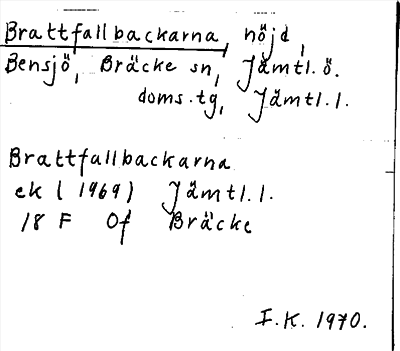 Brattfallbackarna, höjd,
Bensjö, Bräcke sn, Jämtl. ö.
doms.tg, Jämtl.l.
Brattfallbackarna
ek (1969) Jämtl.l.
18 F Of Bräcke
I.K. 1970.